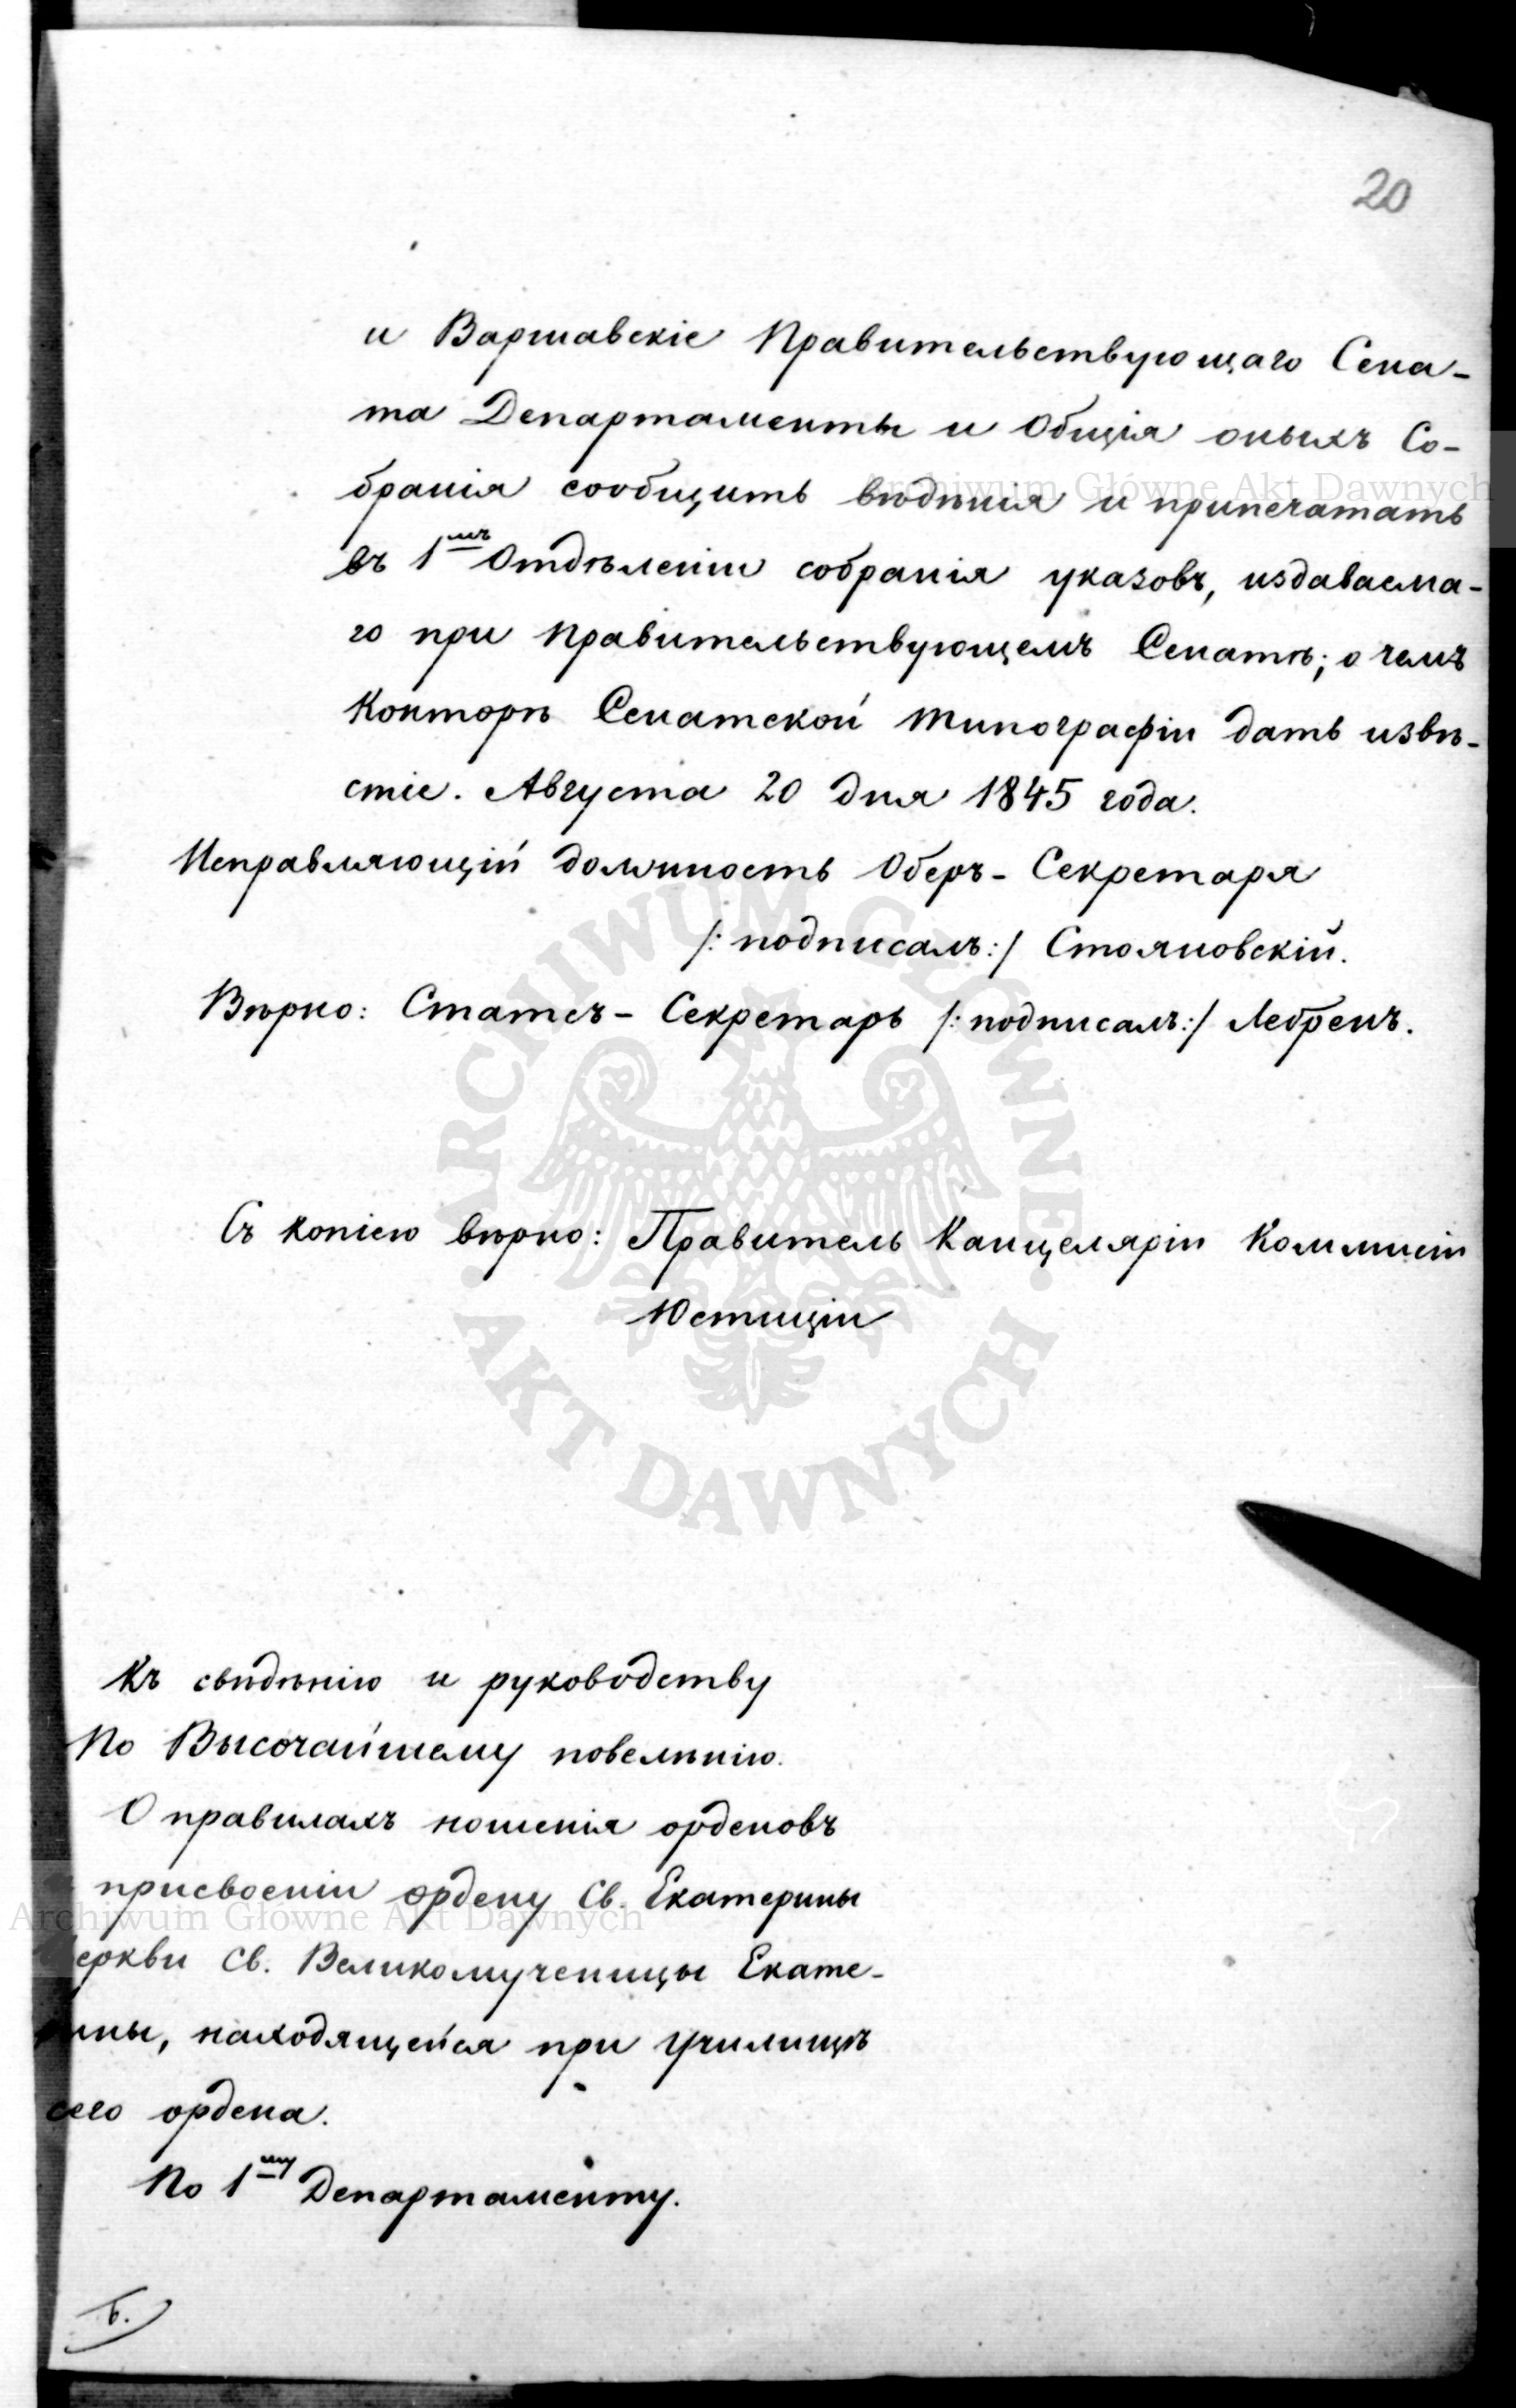 20
и Варшавскіе Правительствующаго Сена-
та Департаменты и Общія оныхъ Со-
бранія сообщить вѣдѣнія и припечатать
въ 1мъ Отдѣленіи собранія указовъ, издаваема-
го при Правительствующемъ Сенатѣ; о чемъ
Конторѣ Сенатской типографіи дать извѣ-
стіе. Августа 20 дня 1845 года.
Исправляющій должность Оберъ-Секретаря
/: подписалъ:/ Стояновскій.
Вѣрно: Статсъ-Секретарь /: подписалъ:/ Лебренъ.
Съ копіею вѣрно: Правитель Канцеляріи Коммисіи
Юстиціи
Къ свѣдѣнію и руководству
По Высочайшему повелѣнію.
О правилахъ ношенія орденовъ
присвоеніи ордену Св. Екатерины
еркви Св. Великомученицы Екате-
ины, находящейся при училищѣ
сего ордена.
По 1му Департаменту.
Archiwum Główne Akt Dawnych
Archiwum Główne Akt Dawnych
ARCHIWUM GŁÓWNE AKT DAWNYCH